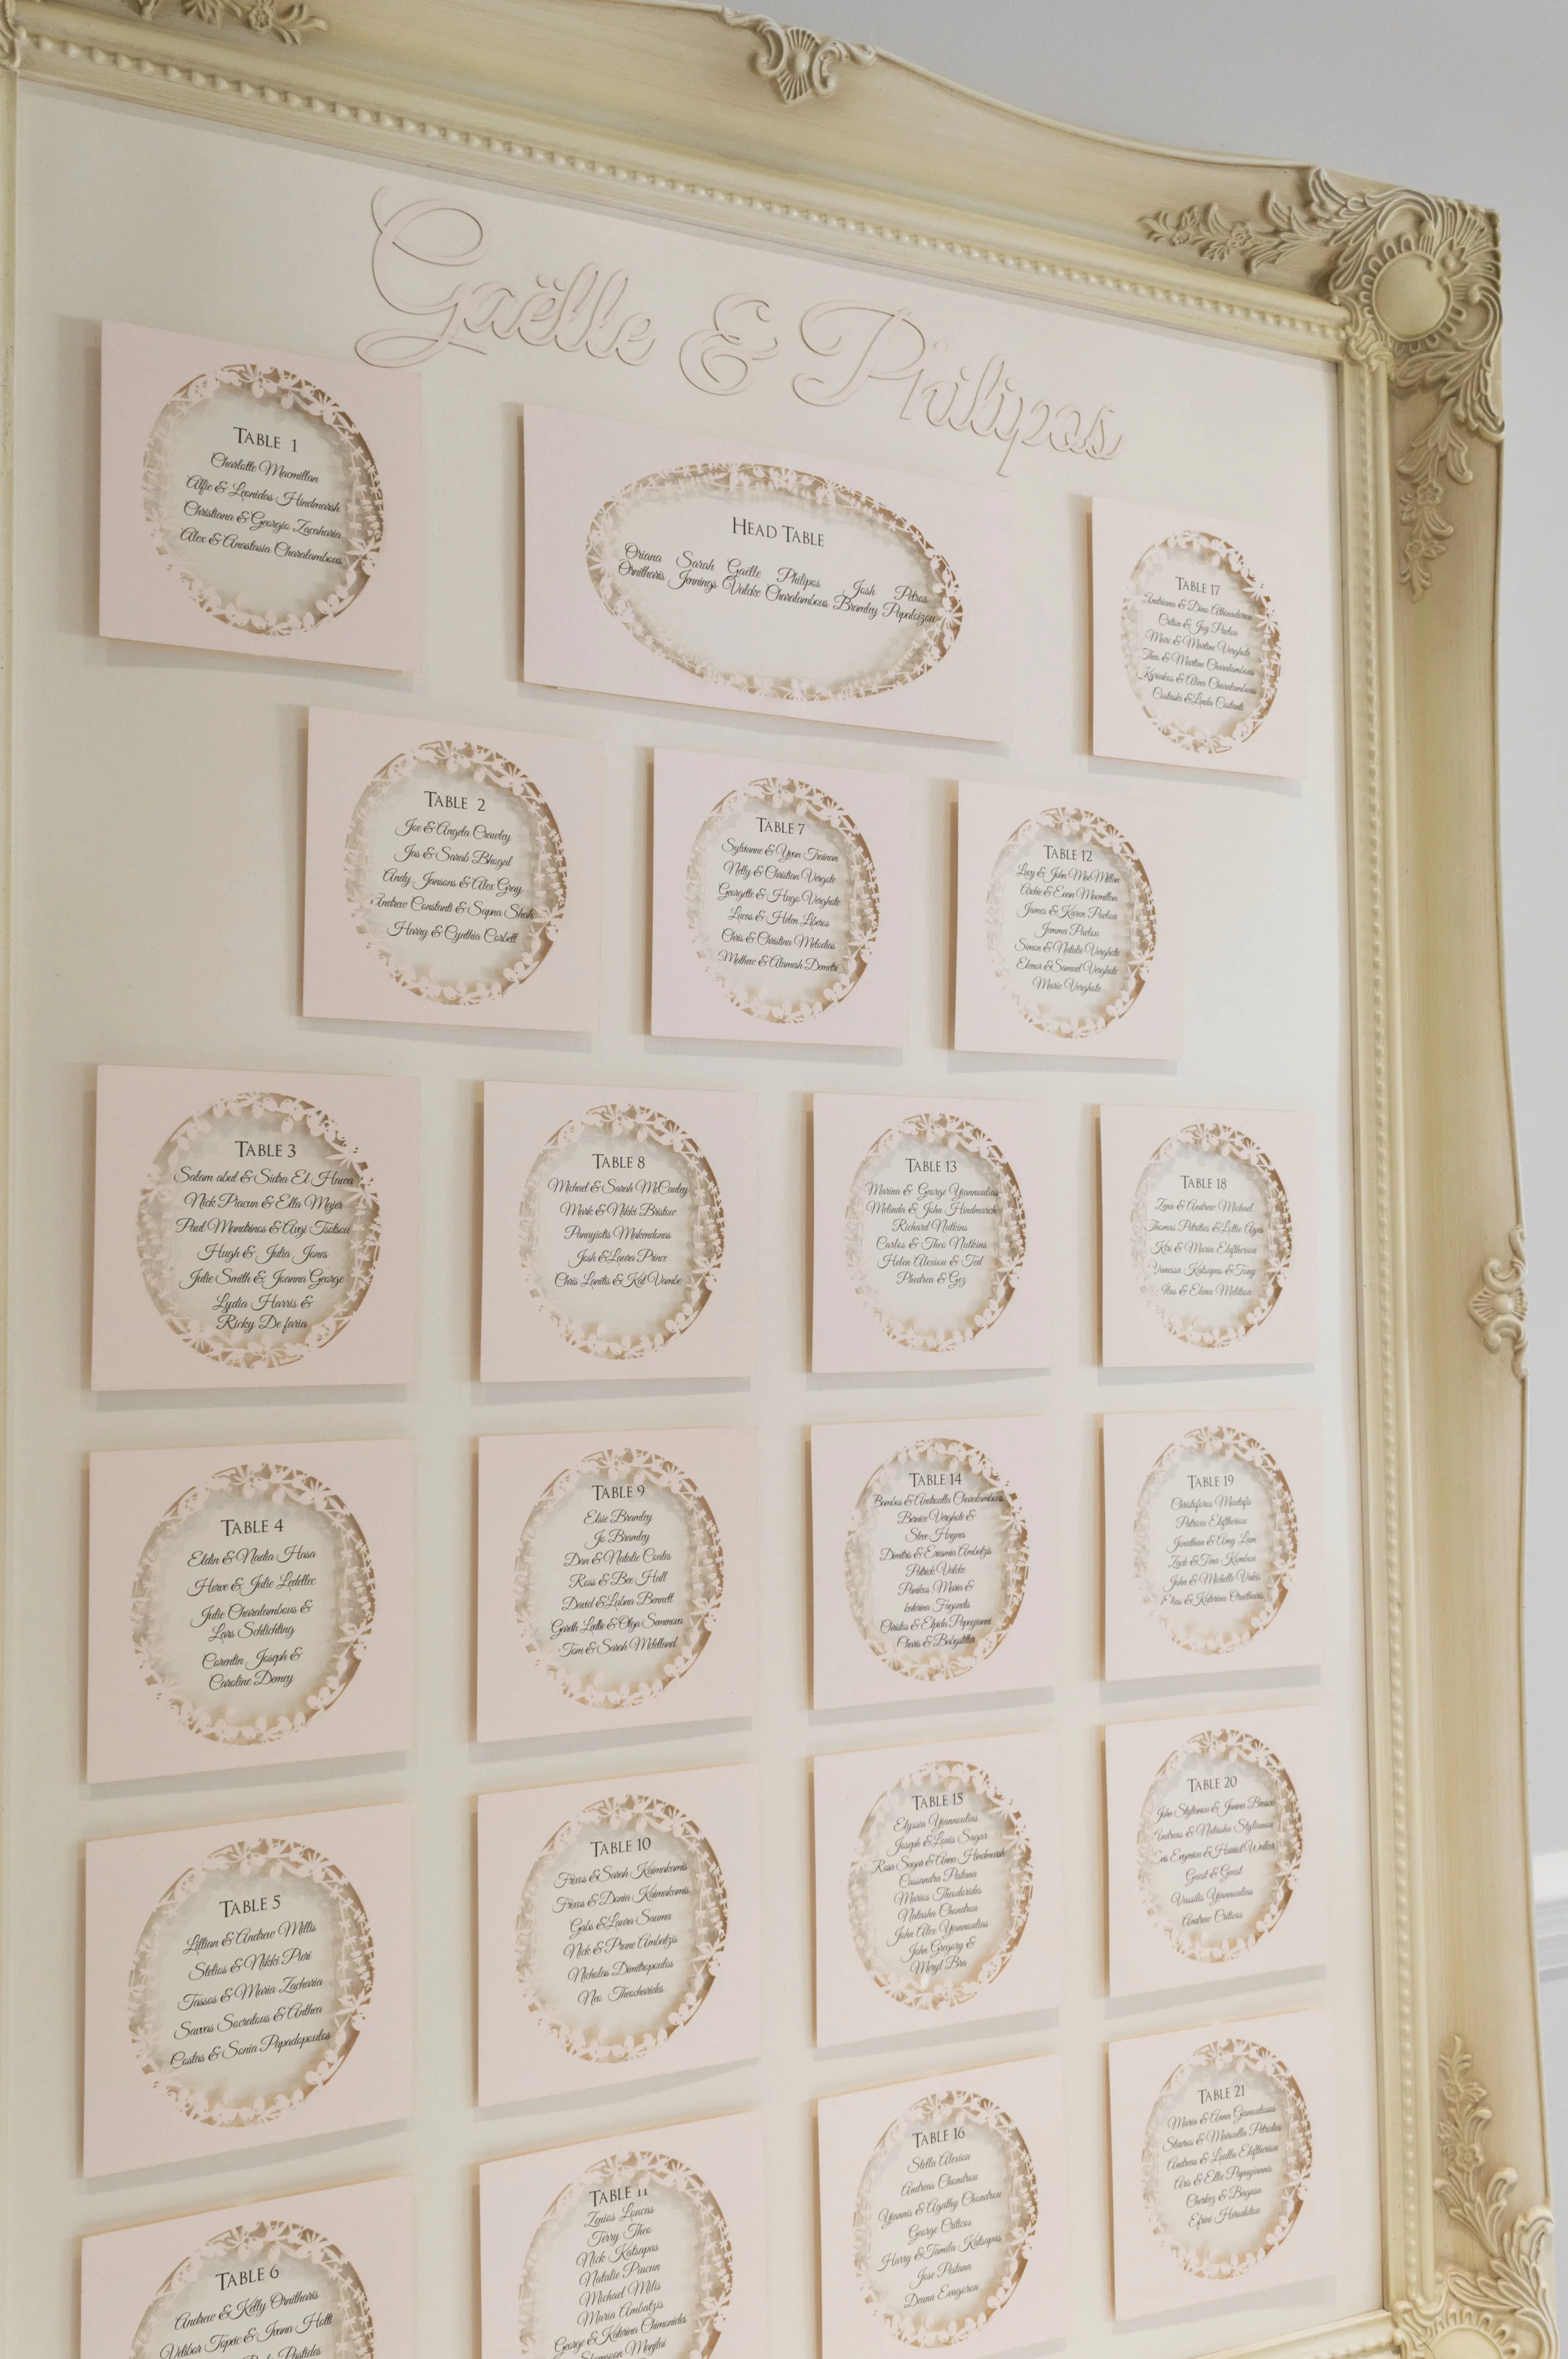 Gaëlle & Philipos
TABLE 1
Charlotte Macmillan
Alfie & Leonidas Hindmarsh
Christiana & Georgio Zacaharia
Alex & Anastasia Charalambous
HEAD TABLE
Oriana Sarah Gaëlle Philipos Josh Petros
Ornitharis Jennings Valcke Charalambous Bramley Papaloizou
TABLE 17
Andriana & Dino
Criton & Joy Pavlou
Marc & Martine Verghote
Theo & Martine Charalambous
Kyriakos & Alina Charalambous
Costaski & Linda Costanti
TABLE 2
Joe & Angela Crawley
Jas & Sarab Bhogal
Andy Jansons & Alex Gray
Andrew Constanti & Sapna Shah
Harry & Cynthia Corbett
TABLE 7
Sylvianne & Yvan Treinen
Nelly & Christian Vergote
Georgette & Hugo Verghote
Lucas & Helen Liberos
Chris & Christina Melodias
Mathew & Alamesh Demetri
TABLE 12
Lucy & John MacMillan
Archie & Euan Macmillan
James & Karen Pavlou
Jemma Pavlou
Simon & Natalie Verghote
Elenor & Samuel Verghote
Marie Verghote
TABLE 3
Salam abul & Sidra El Hawa
Nick Piacun & Ella Majer
Paul Mandrinos & Avgi Tsotsou
Hugh & Julia Jones
Julie Smith & Joanna George
Lydia Harris &
Ricky De faria
TABLE 8
Michael & Sarah McCauley
Mark & Nikki Bristow
Panayiotis Makendonas
Josh & Laura Prince
Chris Lanitis & Kat Vambe
TABLE 13
Marina & George Yiannoulias
Melinda & John Hindmarch
Richard Nutkins
Carlos & Theo Nutkins
Helen Alexiou & Ted
Phedrea & Gez
TABLE 18
Zena & Andrew Michael
Thomas Petrides & Lottie Ayes
Keri & Maria Eleftheriou
Vanessa Katsapas & Tony
Ilias & Elena Melition
TABLE 4
Eldin & Nadia Hasa
Herve & Julie Ledellec
Julie Charalambous &
Lars Schlichting
Corentin Joseph &
Caroline Demey
TABLE 9
Elsie Bramley
Jo Bramley
Dan & Natalie Coates
Ross & Bec Hall
David & Lubna Bennett
Gareth Leslie & Olga Semenova
Tom & Sarah Mclelland
TABLE 14
Bambos & Androulla Charalambous
Bernice Verghote &
Steve Haynes
Dimitris & Erasmia Ambatzis
Patrick Valcke
Panikos Maria &
katerina Fagondis
Christos & Elpida Papagianni
Charis & Babysitter
TABLE 19
Christoforos Mantafis
Patricia Eleftheriou
Jonathan & Amy Lam
Zack & Tina Kombou
John & Michelle Vakis
Elias & Katerina Ornitharis
TABLE 5
Lillian & Andrew Millis
Stelios & Nikki Pieri
Tassos & Maria Zacharia
Savvas Socratous & Anthea
Costas & Sonia Papadopoulos
TABLE 10
Frixos & Sarah Kaimakamis
Frixos & Donia Kaimakamis
Gabs & Laura Sauma
Nick & Prune Ambatzis
Nicholas Dimitropoulos
Neo Theocharides
TABLE 15
Elyssia Yiannoulias
Joseph & Louis Sugar
Rosa Sugar & Anna Hindmarsh
Cassandra Pistana
Marios Theodorides
Natasha Chondrou
John Alex Yiannoulias
John Gregory &
Meryl Bra
TABLE 20
John Stylianou & Janine
Andreas & Natasha Stylianou
Evgeniou & Harriet Walker
Guest & Guest
Vassilis Yiannoulias
Andrew Criticos
TABLE 6
Andrew & Kelly Ornitharis
Velibor Topcic & Ivana Holt
Pastides
TABLE 11
Zenios Loucas
Terry Theo
Nick Katsapas
Natalie Piacun
Michael Milis
Maria Ambatzis
George & Katerina Chimonides
TABLE 16
Stella Alexiou
Andreas Chondrou
Yiannis & Agathy Chondrou
George Criticos
Harry & Tamila Katsapas
Jose Pistana
Deana Evagorou
TABLE 21
Maria & Anna
Stavros & Maroulla Petrides
Andreas & Loulla Eleftheriou
Aris & Ellie Papagiannis
Cherkez & Bayson
Efrini Herodotou